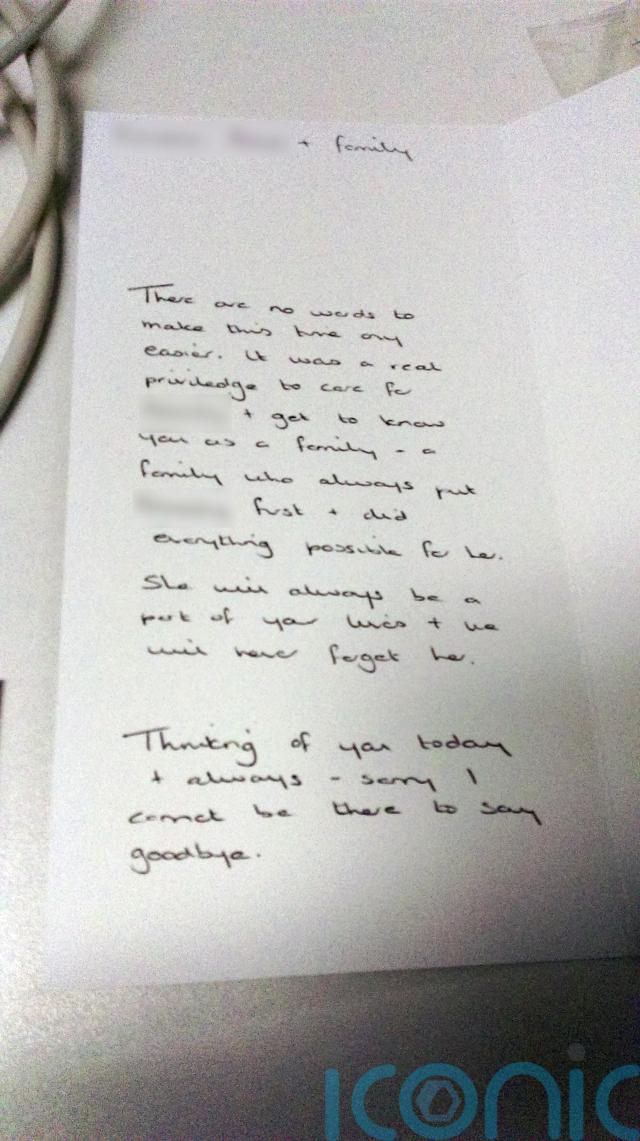 + family
There are no words to
make this time any
easier. It was a real
priviledge to care for
+ get to know
you as a family - a
family who always put
first + did
everything possible for her.
She will always be a
part of your lives + we
will never forget her.
Thinking of you today
+ always - sorry I
cannot be there to say
goodbye.
iconic